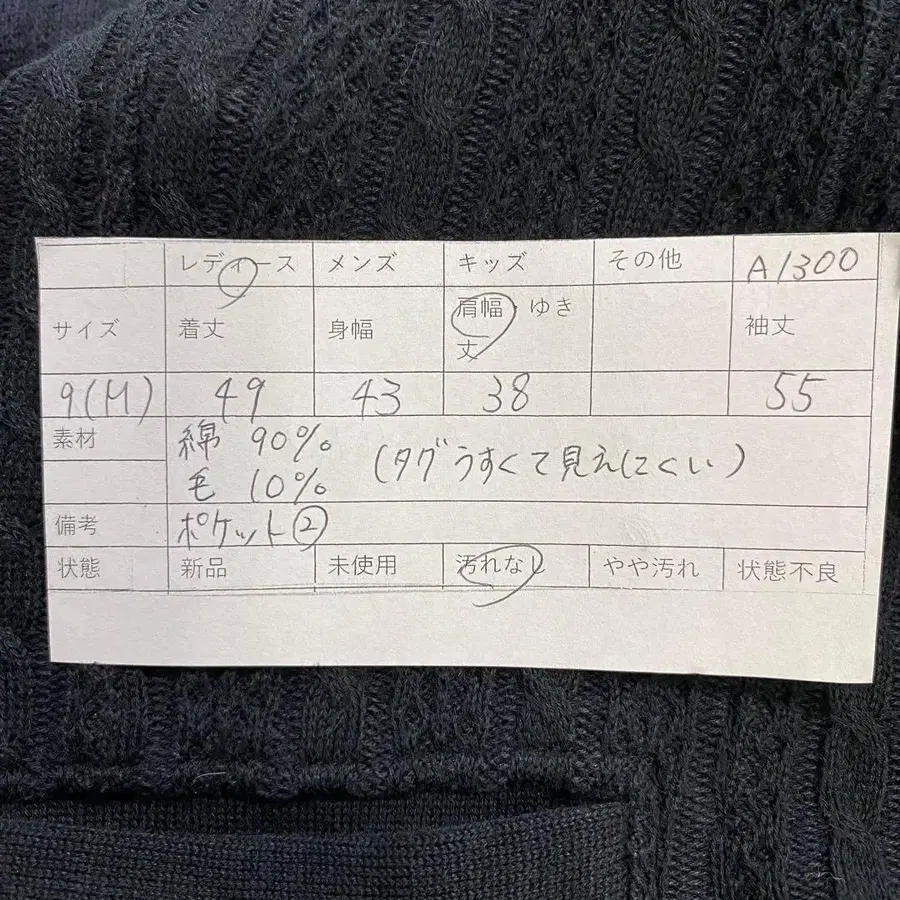 レディース メンズ キッズ その他 A1300
サイズ 着丈 身幅 肩幅・ゆき丈 袖丈
9(M) 49 43 38 55
素材 綿 90%
毛 10% (タグうすくて見えにくい)
備考 ポケット②
状態 新品 未使用 汚れなし やや汚れ 状態不良